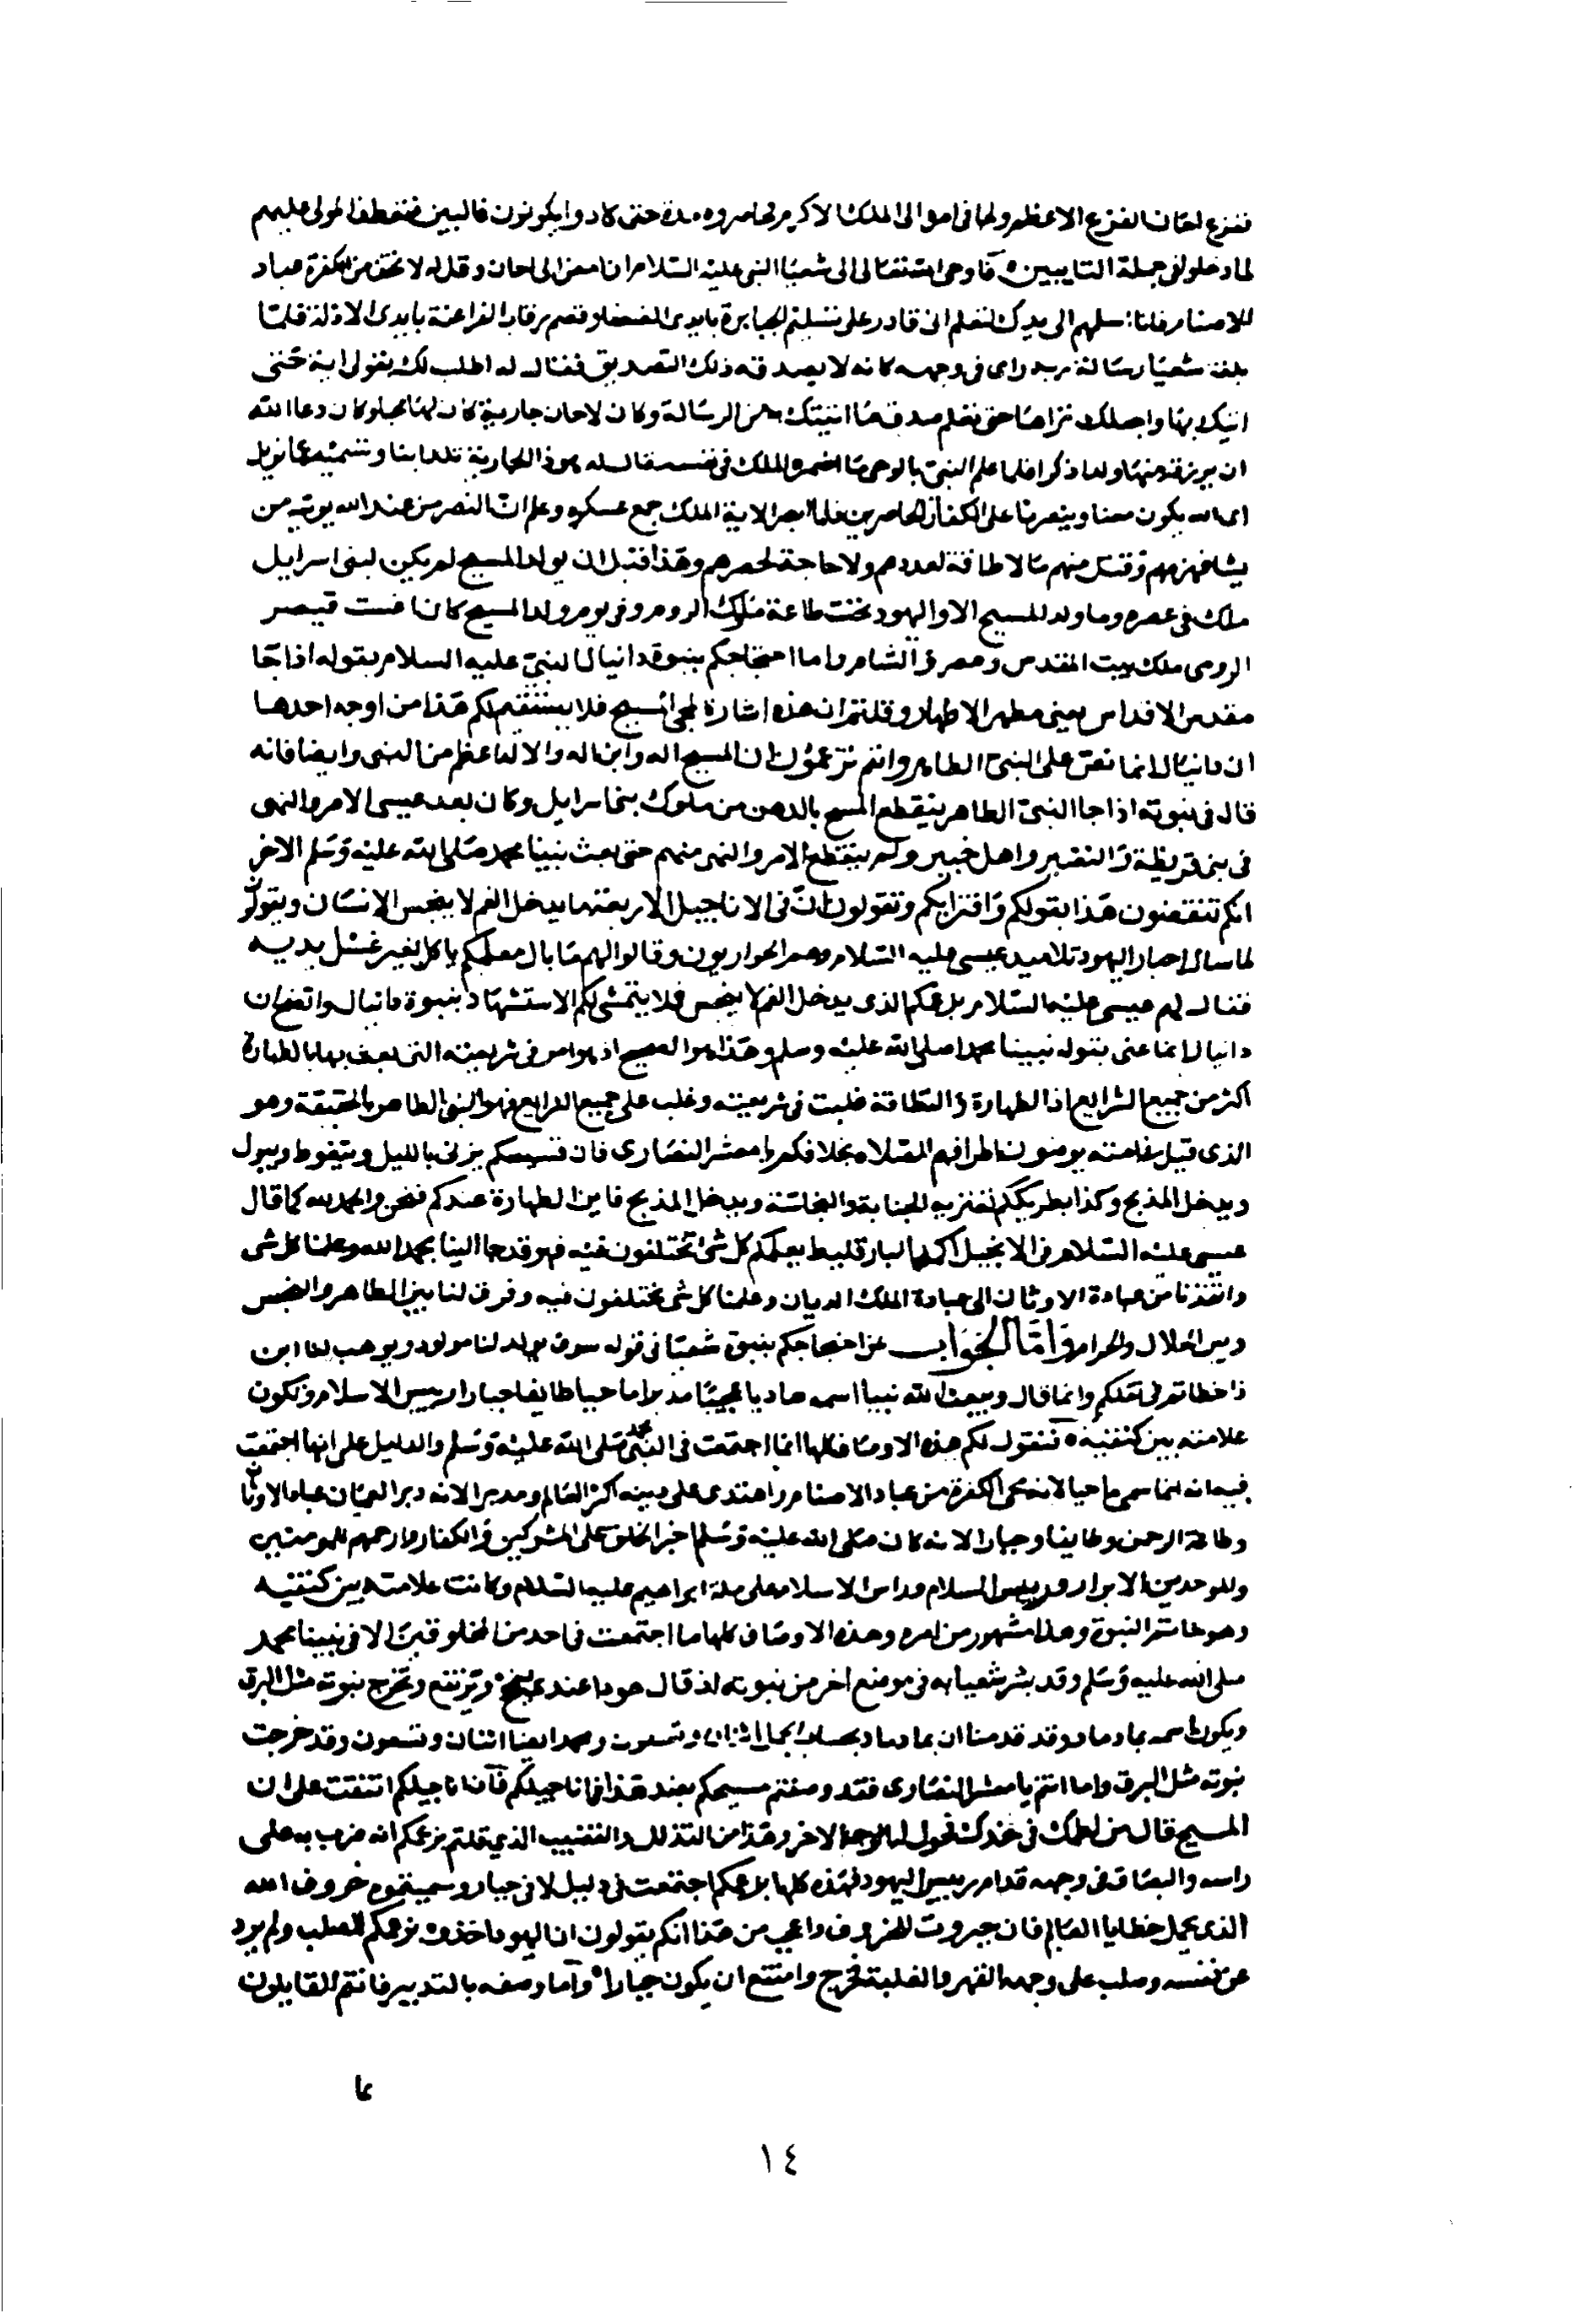 ففزع لحان الفزع الاعظم ولجا فى اموا الى الملك الاكرم فحاصروه مدة حتى كادوا يكونون غالبين فتعطف المولى عليهم
لما دخلوا فى جملة التايبين فاوحى الله تعالى الى شعيا النبى عليه السلام ان امض الى احان وقل له لا تخف من الكفرة عباد
الاصنام فانا اسلمهم الى يدك لتعلم انى قادر على تسليم الجبابرة بايدى الضعفا وقصم رقاب الفراعنة بايدى الاذلة فلما
بلغه شعيا رسالة ربه راى فى وجهه كانه لا يصدقه ذلك التصديق فقال له اطلب لك بقولى اية حتى
اتيك بها واجعلك تراها حتى تعلم صدق ما اتيتك به من الرسالة وكان لاحان جارية كان لها محبا وكان دعا الله
ان يرزقه منها ولدا ذكرا فلما علم النبى بالوحى ما اضمر الملك فى نفسه قال له هوذا الجارية تلد ابنا وتسميه عمانويل
اى الله يكون معنا وينصرنا على الكفار المحاصرين فلما ابصر الاية الملك جمع عسكره وعلم ان النصر من عند الله يوتيه من
يشا فهزمهم وقتل منهم ما لا طاقة لعددهم ولا حاجة لحصرهم وهذا قبل ان يولد المسيح لم يكن لبنى اسرايل
ملك فى عصره وما ولد المسيح الا واليهود تحت طاعة ملوك الروم وفى يوم ولد المسيح كان اغست قيصر
الرومى ملك بيت المقدس ومصر والشام واما احتجاجكم بنبوة دانيال النبى عليه السلام بقوله اذا جا
مقدس الاقداس يعنى مطهر الاطهار وقلتم ان هذه اشارة لمجى المسيح فلا يستقيم لكم هذا من اوجه احدها
ان دانيال انما نص على النبى الطاهر وانتم تزعمون ان المسيح اله وابن اله والاله اعظم من النبى وايضا فانه
قال فى نبوته اذا جا النبى الطاهر ينقطع المسح بالدهن من ملوك بنى اسرايل وكان بعد عيسى الامر والنهى
فى بنى قريظة والنضير واهل خيبر ولم ينقطع الامر والنهى منهم حتى بعث نبينا محمد صلى الله عليه وسلم الاخر
انكم تنقضون هذا بقولكم وافترايكم وتقولون ان فى الاناجيل الاربعة ما يدخل الفم لا ينجس الانسان وتقولون
لما سال احبار اليهود تلاميذ عيسى عليه السلام وهم الحواريون وقالوا لهم ما بال معلمكم ياكل بغير غسل يديه
فقال لهم عيسى عليه السلام بزعمكم الذى يدخل الفم لا ينجس فلا يتمشى لكم الاستشهاد بنبوة دانيال واتضح ان
دانيال انما عنى بقوله نبينا محمدا صلى الله عليه وسلم وهذا هو الصحيح اذ هو امر فى شريعته التى بعث بها بالطهارة
اكثر من جميع الشرايع اذ الطهارة والنظافة غلبت فى شريعته وغلب على جميع الشرايع فهو النبى الطاهر بالحقيقة وهو
الذى قيل علامته يوضون اطرافهم للصلاه بخلافكم يا معشر النصارى فان قسيسكم يزنى بالليل ويتغوط ويبول
ويدخل المذبح وكذا بطريككم تعتريه الجنابة والنجاسة ويدخل المذبح فاين الطهارة عندكم فنحن والحمد لله كما قال
عيسى عليه السلام فى الانجيل اذا جا البارقليط يعلمكم كل شى تختلفون فيه فهو قد جا الينا بحمد الله وعلمنا كل شى
وانقذنا من عبادة الاوثان الى عبادة الملك الديان وعلمنا كل شى يختلفون فيه وفرق لنا بين الطاهر والنجس
وبين الحلال والحرام واما الجواب عن احتجاجكم بنبوة شعيا فى قوله سوف يولد لنا مولود ويوهب لنا ابن
فاخطاتم فى نقلكم وانما قال ويبعث الله نبيا اسمه هاديا عجيبا مدبرا ماحيا طايفا جبارا رييس الاسلام وتكون
علامته بين كتفيه فنقول لكم هذه الاوصاف كلها انما اجتمعت فى النبى محمد صلى الله عليه وسلم والدليل على انها اجتمعت
فيه انه انما سمى ماحيا لانه محى الكفرة من عباد الاصنام واهتدى على دينه اكثر العالم ومدبرا لانه دبر العميان عباد الاوثان
وطاعة الرحمن وطايفا وجبارا لانه كان صلى الله عليه وسلم اجبر الخلق على المشركين والكفار وارحمهم للمومنين
وللموحدين الابرار ورييس السلام وراس الاسلام على ملة ابراهيم عليه السلام وكانت علامته بين كتفيه
وهو خاتم النبوة وهذا مشهور من امره وهذه الاوصاف كلها ما اجتمعت فى احد من المخلوقين الا فى نبينا محمد
صلى الله عليه وسلم وقد بشر شعيا به فى موضع اخر من نبوته اذ قال هوذا عبدى ينجح ويرتفع وتخرج نبوته مثل البرق
ويكون اسمه بماد ماد وقد قدمنا ان بماد ماد بحساب الجمل اثنان وتسعون ومحمد ايضا اثنان وتسعون وقد خرجت
نبوته مثل البرق واما انتم يا معشر النصارى فقد وصفتم مسيحكم بضد هذا فى اناجيلكم فان اناجيلكم اتفقت على ان
المسيح قال من لطمك فى خدك فحول له الاخر وهذا من التذلل والتقنيب الذى قلتم بزعمكم انه ضرب به على
راسه والبصاق فى وجهه قدام رييس اليهود فهذه كلها بزعمكم اجتمعت فى ذليل لا فى جبار وسميتموه خروف الله
الذى يحمل خطايا العالم فان جبروت الخروف واعجب من هذا انكم تقولون ان اليهود اخذوه بزعمكم للصلب ولم يرد
عن نفسه وصلب على وجه القهر والغلبة فخرج وامتنع ان يكون جبارا واما وصفه بالتدبير فانتم القايلون
عا
١٤